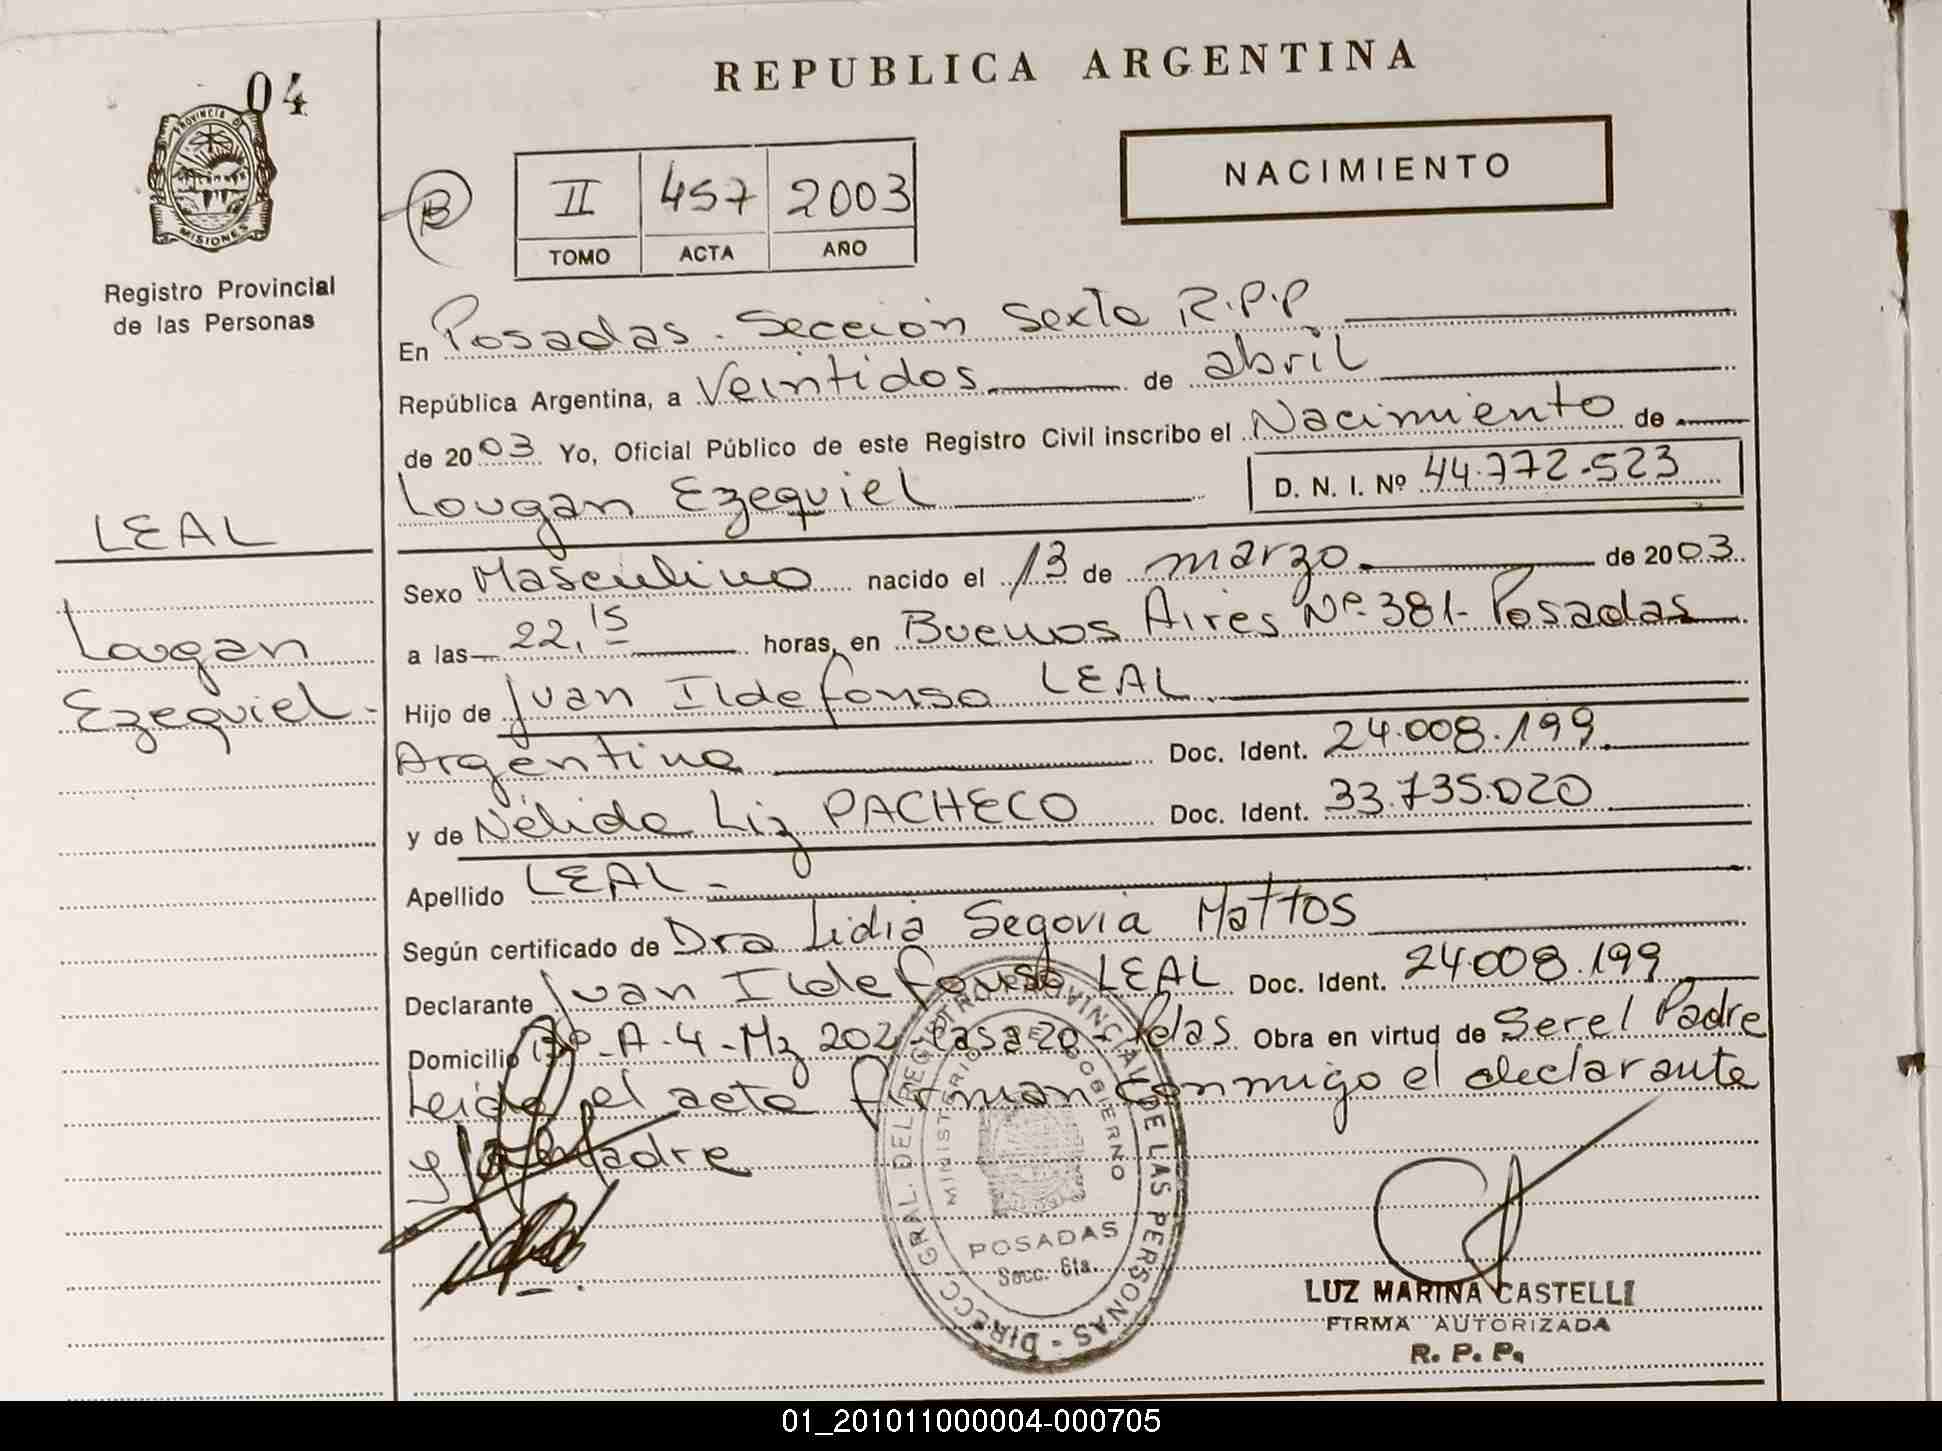 04
PROVINCIA DE
MISIONES
Registro Provincial
de las Personas
LEAL
Lougan
Ezequiel -
REPUBLICA ARGENTINA
B
II 457 2003
TOMO ACTA AÑO
NACIMIENTO
En Posadas. Sección Sexta R.P.P
República Argentina, a Veintidos de abril
de 2003 Yo, Oficial Público de este Registro Civil inscribo el Nacimiento de
Lougan Ezequiel D. N. I. Nº 44.772.523
Sexo Masculino nacido el 13 de marzo de 2003
a las 22,15 horas, en Buenos Aires Nº 381- Posadas
Hijo de Juan Ildefonso LEAL
Argentino Doc. Ident. 24.008.199
y de Nélida Liz PACHECO Doc. Ident. 33.735.020
Apellido LEAL -
Según certificado de Dra Lidia Segovia Mattos
Declarante Juan Ildefonso LEAL Doc. Ident. 24.008.199
Domicilio A-4-Mz 202 Casa 20 - Pdas Obra en virtud de Ser el Padre
Leida el acta firman conmigo el declarante
y la Madre
DIRECC. GRAL. DEL REGISTRO PROVINCIAL DE LAS PERSONAS -
MINISTERIO DE GOBIERNO
POSADAS
Secc. 6ta.
LUZ MARINA CASTELLI
FIRMA AUTORIZADA
R. P. P.
01_201011000004-000705